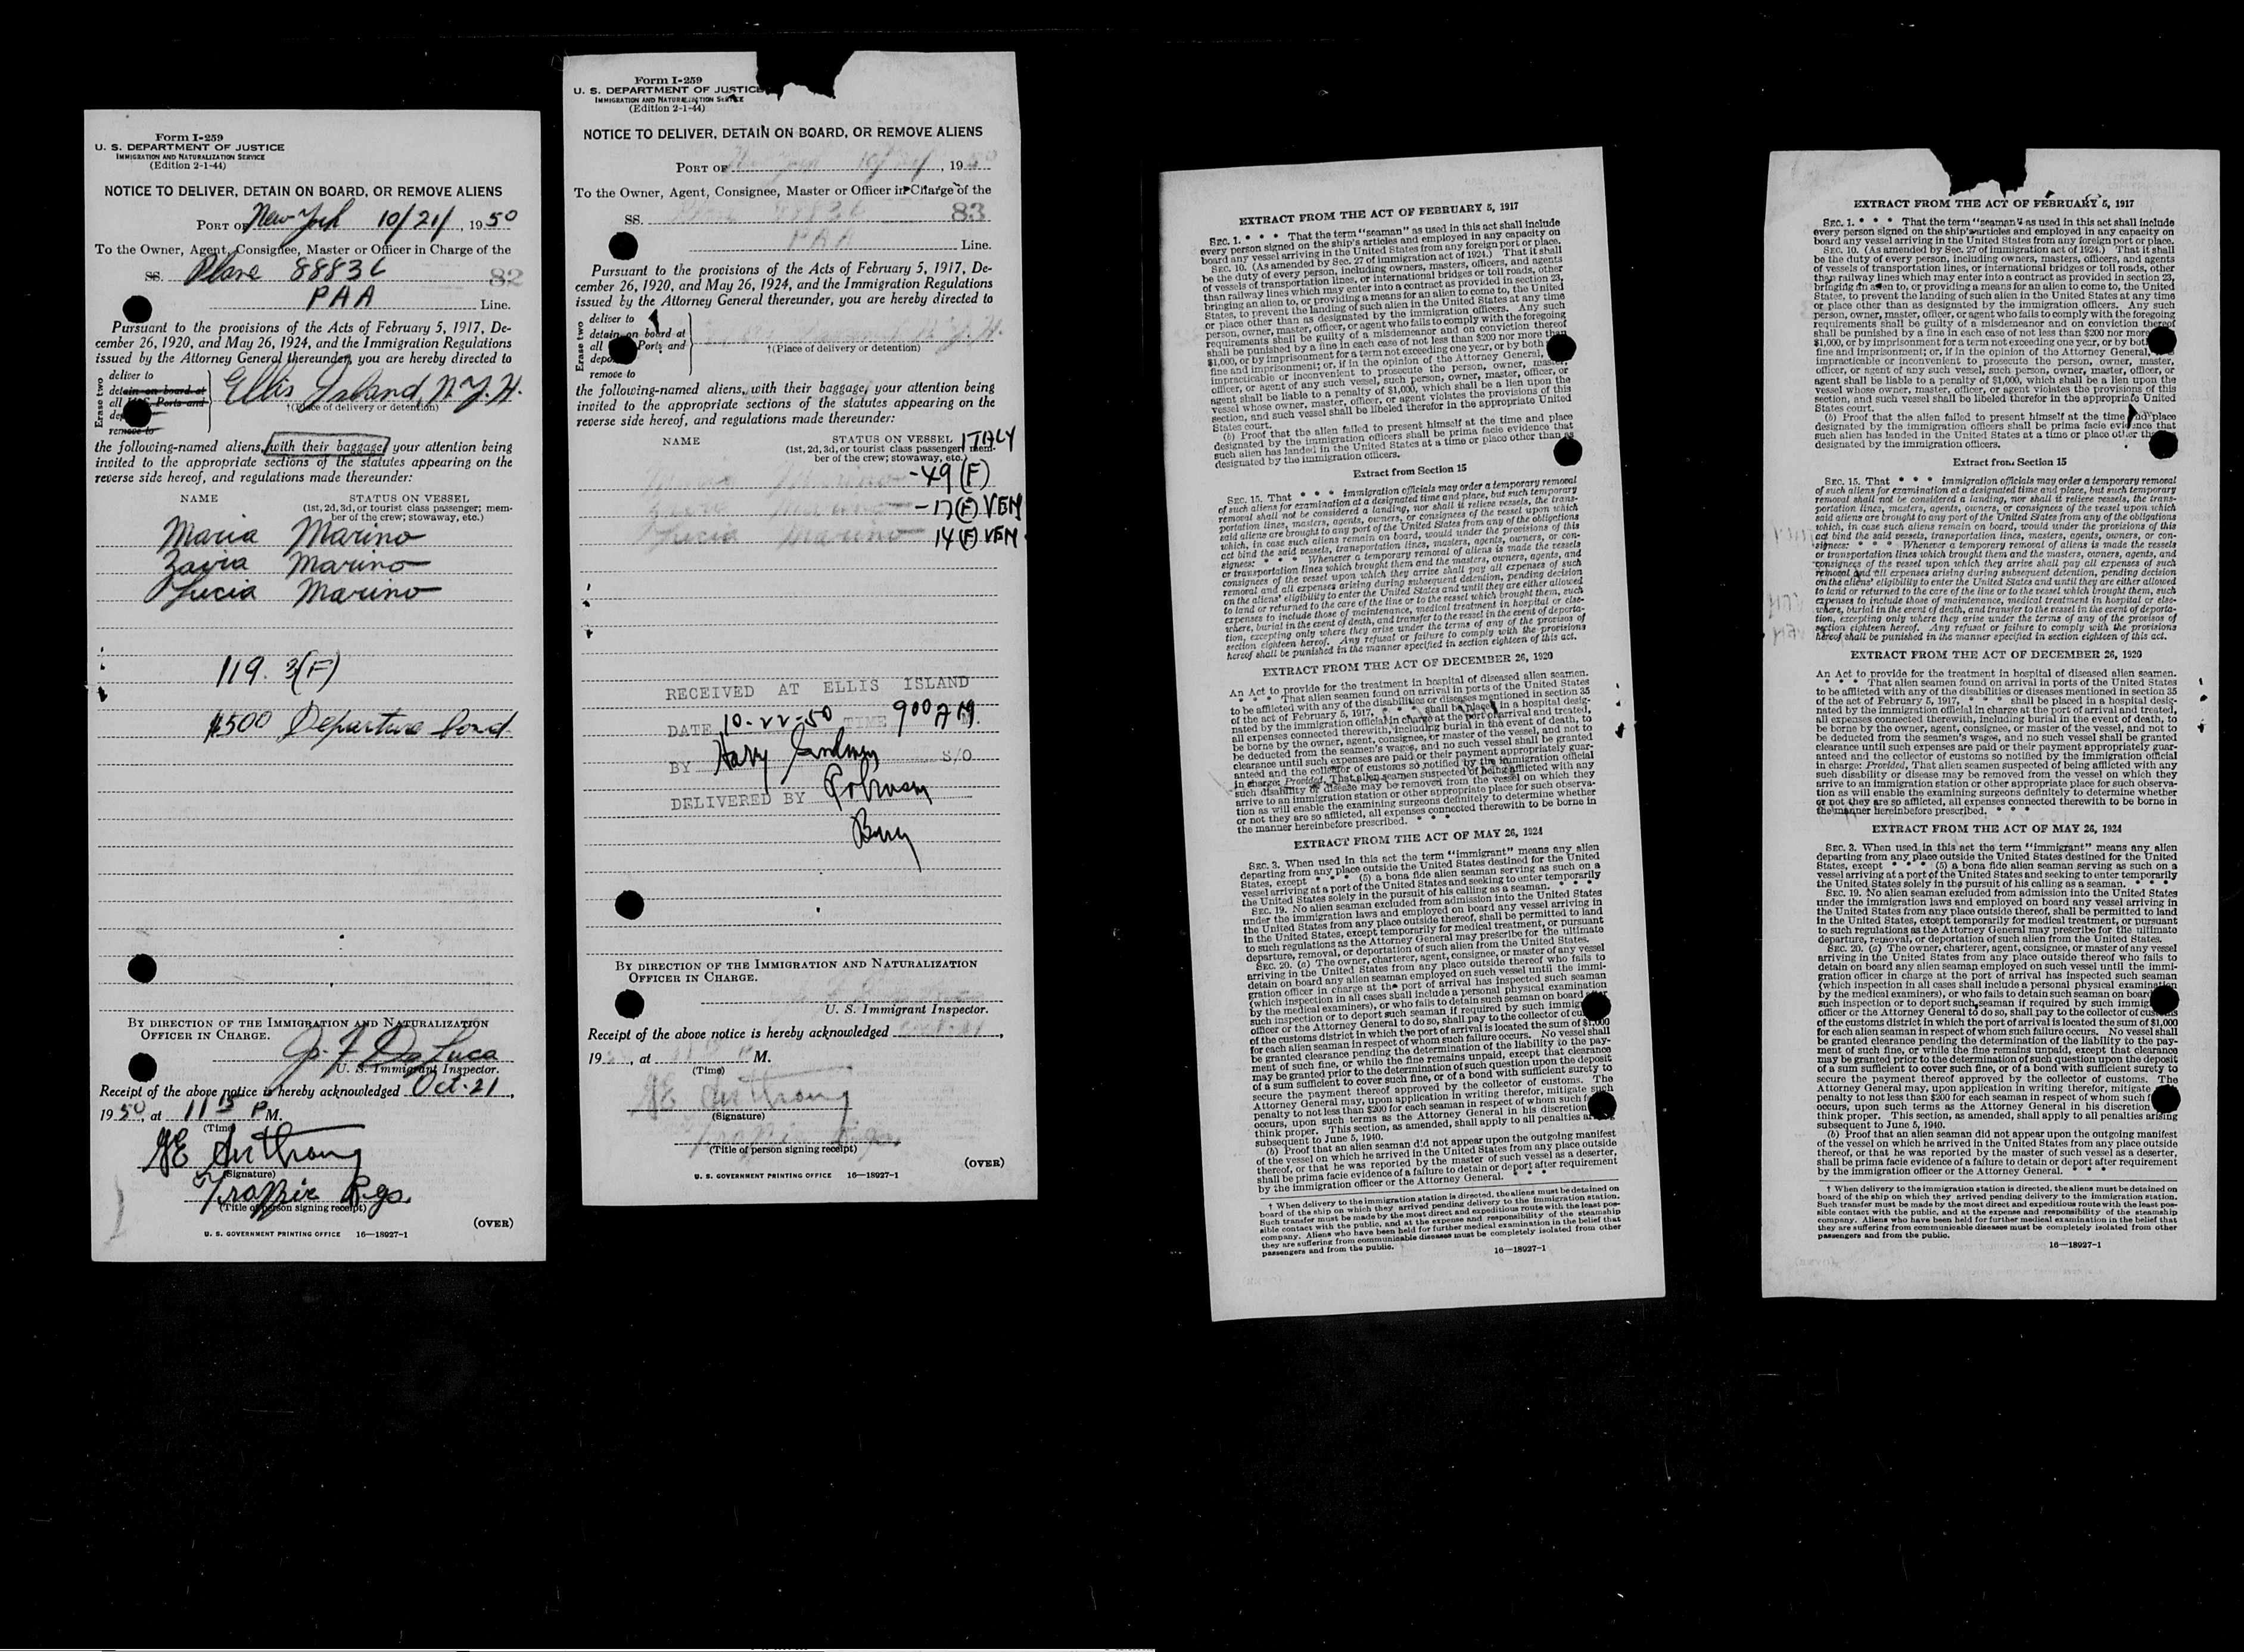 Form I-259
U. S. DEPARTMENT OF JUSTICE
IMMIGRATION AND NATURALIZATION SERVICE
(Edition 2-1-44)
NOTICE TO DELIVER, DETAIN ON BOARD, OR REMOVE ALIENS
PORT OF New York 10/21/, 1950
To the Owner, Agent, Consignee, Master or Officer in Charge of the
SS. Plane 88836 82
PAA Line.
Pursuant to the provisions of the Acts of February 5, 1917, De-
cember 26, 1920, and May 26, 1924, and the Immigration Regulations
issued by the Attorney General thereunder, you are hereby directed to
Erase two
deliver to
detain on board at
all U.S. Ports and
remove to
Ellis Island, N.Y.H.
†(Place of delivery or detention)
the following-named aliens, with their baggage, your attention being
invited to the appropriate sections of the statutes appearing on the
reverse side hereof, and regulations made thereunder:
NAME STATUS ON VESSEL
(1st, 2d, 3d, or tourist class passenger; mem-
ber of the crew; stowaway, etc.)
Maria Marino
Marino
Lucia Marino
119. 3(F)
$500 Departure bond
BY DIRECTION OF THE IMMIGRATION AND NATURALIZATION
OFFICER IN CHARGE.
Jo. F. De Luca
U. S. Immigrant Inspector.
Receipt of the above notice is hereby acknowledged Oct. 21,
1950, at 11 15 P M.
(Time)
GE Anthony
(Signature)
Traffic Rep.
(Title of person signing receipt)
(OVER)
U. S. GOVERNMENT PRINTING OFFICE 16—18927-1
Form I-259
U. S. DEPARTMENT OF JUSTICE
IMMIGRATION AND NATURALIZATION SERVICE
(Edition 2-1-44)
NOTICE TO DELIVER, DETAIN ON BOARD, OR REMOVE ALIENS
PORT OF New York 10/21/, 1950
To the Owner, Agent, Consignee, Master or Officer in Charge of the
SS. Plane 88836 83
PAA Line.
Pursuant to the provisions of the Acts of February 5, 1917, De-
cember 26, 1920, and May 26, 1924, and the Immigration Regulations
issued by the Attorney General thereunder, you are hereby directed to
Erase two
deliver to
detain on board at
all Ports and
remove to
†(Place of delivery or detention)
the following-named aliens, with their baggage, your attention being
invited to the appropriate sections of the statutes appearing on the
reverse side hereof, and regulations made thereunder:
NAME STATUS ON VESSEL ITALY
(1st, 2d, 3d, or tourist class passenger; mem-
ber of the crew; stowaway, etc.)
Maria Marino -49 (F)
Marino -17 (F) VEN
Lucia Marino 14 (F) VEN
RECEIVED AT ELLIS ISLAND
DATE 10-22-50 TIME 900 AM.
BY Harry S/O
DELIVERED BY
BY DIRECTION OF THE IMMIGRATION AND NATURALIZATION
OFFICER IN CHARGE.
U. S. Immigrant Inspector.
Receipt of the above notice is hereby acknowledged Oct. 21,
1950, at 11 15 P M.
(Time)
GE Anthony
(Signature)
Traffic Rep.
(Title of person signing receipt)
(OVER)
U. S. GOVERNMENT PRINTING OFFICE 16—18927-1
EXTRACT FROM THE ACT OF FEBRUARY 5, 1917
SEC. 1. * * * That the term "seaman" as used in this act shall include
every person signed on the ship's articles and employed in any capacity on
board any vessel arriving in the United States from any foreign port or place.
SEC. 10. (As amended by Sec. 27 of immigration act of 1924.) That it shall
be the duty of every person, including owners, masters, officers, and agents
of vessels of transportation lines, or international bridges or toll roads, other
than railway lines which may enter into a contract as provided in section 23,
bringing an alien to, or providing a means for an alien to come to, the United
States, to prevent the landing of such alien in the United States at any time
or place other than as designated by the immigration officers. Any such
person, owner, master, officer, or agent who fails to comply with the foregoing
requirements shall be guilty of a misdemeanor and on conviction thereof
shall be punished by a fine in each case of not less than $200 nor more than
$1,000, or by imprisonment for a term not exceeding one year, or by both
fine and imprisonment; or, if in the opinion of the Attorney General,
impracticable or inconvenient to prosecute the person, owner, master,
officer, or agent of any such vessel, such person, owner, master, officer, or
agent shall be liable to a penalty of $1,000, which shall be a lien upon the
vessel whose owner, master, officer, or agent violates the provisions of this
section, and such vessel shall be libeled therefor in the appropriate United
States court.
(b) Proof that the alien failed to present himself at the time and place
designated by the immigration officers shall be prima facie evidence that
such alien has landed in the United States at a time or place other than as
designated by the immigration officers.
Extract from Section 15
SEC. 15. That * * * immigration officials may order a temporary removal
of such aliens for examination at a designated time and place, but such temporary
removal shall not be considered a landing, nor shall it relieve vessels, the trans-
portation lines, masters, agents, owners, or consignees of the vessel upon which
said aliens are brought to any port of the United States from any of the obligations
which, in case such aliens remain on board, would under the provisions of this
act bind the said vessels, transportation lines, masters, agents, owners, or con-
signees: * * * Whenever a temporary removal of aliens is made the vessels
or transportation lines which brought them and the masters, owners, agents, and
consignees of the vessel upon which they arrive shall pay all expenses of such
removal and all expenses arising during subsequent detention, pending decision
on the aliens' eligibility to enter the United States and until they are either allowed
to land or returned to the care of the line or to the vessel which brought them, such
expenses to include those of maintenance, medical treatment in hospital or else-
where, burial in the event of death, and transfer to the vessel in the event of deporta-
tion, excepting only where they arise under the terms of any of the provisos of
section eighteen hereof. Any refusal or failure to comply with the provisions
hereof shall be punished in the manner specified in section eighteen of this act.
EXTRACT FROM THE ACT OF DECEMBER 26, 1920
An Act to provide for the treatment in hospital of diseased alien seamen.
* * * That alien seamen found on arrival in ports of the United States
to be afflicted with any of the disabilities or diseases mentioned in section 35
of the act of February 5, 1917, * * * shall be placed in a hospital desig-
nated by the immigration official in charge at the port of arrival and treated,
all expenses connected therewith, including burial in the event of death, to
be borne by the owner, agent, consignee, or master of the vessel, and not to
be deducted from the seamen's wages, and no such vessel shall be granted
clearance until such expenses are paid or their payment appropriately guar-
anteed and the collector of customs so notified by the immigration official
in charge: Provided, That alien seamen suspected of being afflicted with any
such disability or disease may be removed from the vessel on which they
arrive to an immigration station or other appropriate place for such observa-
tion as will enable the examining surgeons definitely to determine whether
or not they are so afflicted, all expenses connected therewith to be borne in
the manner hereinbefore prescribed. * * *
EXTRACT FROM THE ACT OF MAY 26, 1924
SEC. 3. When used in this act the term "immigrant" means any alien
departing from any place outside the United States destined for the United
States, except * * * (5) a bona fide alien seaman serving as such on a
vessel arriving at a port of the United States and seeking to enter temporarily
the United States solely in the pursuit of his calling as a seaman. * * *
SEC. 19. No alien seaman excluded from admission into the United States
under the immigration laws and employed on board any vessel arriving in
the United States from any place outside thereof, shall be permitted to land
in the United States, except temporarily for medical treatment, or pursuant
to such regulations as the Attorney General may prescribe for the ultimate
departure, removal, or deportation of such alien from the United States.
SEC. 20. (a) The owner, charterer, agent, consignee, or master of any vessel
arriving in the United States from any place outside thereof who fails to
detain on board any alien seaman employed on such vessel until the immi-
gration officer in charge at the port of arrival has inspected such seaman
(which inspection in all cases shall include a personal physical examination
by the medical examiners), or who fails to detain such seaman on board after
such inspection or to deport such seaman if required by such immig
officer or the Attorney General to do so, shall pay to the collector of cu
of the customs district in which the port of arrival is located the sum of $1,000
for each alien seaman in respect of whom such failure occurs. No vessel shall
be granted clearance pending the determination of the liability to the pay-
ment of such fine, or while the fine remains unpaid, except that clearance
may be granted prior to the determination of such question upon the deposit
of a sum sufficient to cover such fine, or of a bond with sufficient surety to
secure the payment thereof approved by the collector of customs. The
Attorney General may, upon application in writing therefor, mitigate such
penalty to not less than $200 for each seaman in respect of whom such f
occurs, upon such terms as the Attorney General in his discretion
think proper. This section, as amended, shall apply to all penalties arising
subsequent to June 5, 1940.
(b) Proof that an alien seaman did not appear upon the outgoing manifest
of the vessel on which he arrived in the United States from any place outside
thereof, or that he was reported by the master of such vessel as a deserter,
shall be prima facie evidence of a failure to detain or deport after requirement
by the immigration officer or the Attorney General. * * *
† When delivery to the immigration station is directed, the aliens must be detained on
board of the ship on which they arrived pending delivery to the immigration station.
Such transfer must be made by the most direct and expeditious route with the least pos-
sible contact with the public, and at the expense and responsibility of the steamship
company. Aliens who have been held for further medical examination in the belief that
they are suffering from communicable diseases must be completely isolated from other
passengers and from the public.
16—18927-1
EXTRACT FROM THE ACT OF FEBRUARY 5, 1917
SEC. 1. * * * That the term "seaman" as used in this act shall include
every person signed on the ship's articles and employed in any capacity on
board any vessel arriving in the United States from any foreign port or place.
SEC. 10. (As amended by Sec. 27 of immigration act of 1924.) That it shall
be the duty of every person, including owners, masters, officers, and agents
of vessels of transportation lines, or international bridges or toll roads, other
than railway lines which may enter into a contract as provided in section 23,
bringing an alien to, or providing a means for an alien to come to, the United
States, to prevent the landing of such alien in the United States at any time
or place other than as designated by the immigration officers. Any such
person, owner, master, officer, or agent who fails to comply with the foregoing
requirements shall be guilty of a misdemeanor and on conviction thereof
shall be punished by a fine in each case of not less than $200 nor more
$1,000, or by imprisonment for a term not exceeding one year, or by both
fine and imprisonment; or, if in the opinion of the Attorney General,
impracticable or inconvenient to prosecute the person, owner, master,
officer, or agent of any such vessel, such person, owner, master, officer, or
agent shall be liable to a penalty of $1,000, which shall be a lien upon the
vessel whose owner, master, officer, or agent violates the provisions of this
section, and such vessel shall be libeled therefor in the appropriate United
States court.
(b) Proof that the alien failed to present himself at the time and place
designated by the immigration officers shall be prima facie evidence that
such alien has landed in the United States at a time or place other than
designated by the immigration officers.
Extract from Section 15
SEC. 15. That * * * immigration officials may order a temporary removal
of such aliens for examination at a designated time and place, but such temporary
removal shall not be considered a landing, nor shall it relieve vessels, the trans-
portation lines, masters, agents, owners, or consignees of the vessel upon which
said aliens are brought to any port of the United States from any of the obligations
which, in case such aliens remain on board, would under the provisions of this
act bind the said vessels, transportation lines, masters, agents, owners, or con-
signees: * * * Whenever a temporary removal of aliens is made the vessels
or transportation lines which brought them and the masters, owners, agents, and
consignees of the vessel upon which they arrive shall pay all expenses of such
removal and all expenses arising during subsequent detention, pending decision
on the aliens' eligibility to enter the United States and until they are either allowed
to land or returned to the care of the line or to the vessel which brought them, such
expenses to include those of maintenance, medical treatment in hospital or else-
where, burial in the event of death, and transfer to the vessel in the event of deporta-
tion, excepting only where they arise under the terms of any of the provisos of
section eighteen hereof. Any refusal or failure to comply with the provisions
hereof shall be punished in the manner specified in section eighteen of this act.
EXTRACT FROM THE ACT OF DECEMBER 26, 1920
An Act to provide for the treatment in hospital of diseased alien seamen.
* * * That alien seamen found on arrival in ports of the United States
to be afflicted with any of the disabilities or diseases mentioned in section 35
of the act of February 5, 1917, * * * shall be placed in a hospital desig-
nated by the immigration official in charge at the port of arrival and treated,
all expenses connected therewith, including burial in the event of death, to
be borne by the owner, agent, consignee, or master of the vessel, and not to
be deducted from the seamen's wages, and no such vessel shall be granted
clearance until such expenses are paid or their payment appropriately guar-
anteed and the collector of customs so notified by the immigration official
in charge: Provided, That alien seamen suspected of being afflicted with any
such disability or disease may be removed from the vessel on which they
arrive to an immigration station or other appropriate place for such observa-
tion as will enable the examining surgeons definitely to determine whether
or not they are so afflicted, all expenses connected therewith to be borne in
the manner hereinbefore prescribed. * * *
EXTRACT FROM THE ACT OF MAY 26, 1924
SEC. 3. When used in this act the term "immigrant" means any alien
departing from any place outside the United States destined for the United
States, except * * * (5) a bona fide alien seaman serving as such on a
vessel arriving at a port of the United States and seeking to enter temporarily
the United States solely in the pursuit of his calling as a seaman. * * *
SEC. 19. No alien seaman excluded from admission into the United States
under the immigration laws and employed on board any vessel arriving in
the United States from any place outside thereof, shall be permitted to land
in the United States, except temporarily for medical treatment, or pursuant
to such regulations as the Attorney General may prescribe for the ultimate
departure, removal, or deportation of such alien from the United States.
SEC. 20. (a) The owner, charterer, agent, consignee, or master of any vessel
arriving in the United States from any place outside thereof who fails to
detain on board any alien seaman employed on such vessel until the immi-
gration officer in charge at the port of arrival has inspected such seaman
(which inspection in all cases shall include a personal physical examination
by the medical examiners), or who fails to detain such seaman on board
such inspection or to deport such seaman if required by such immig
officer or the Attorney General to do so, shall pay to the collector of customs
of the customs district in which the port of arrival is located the sum of $1,000
for each alien seaman in respect of whom such failure occurs. No vessel shall
be granted clearance pending the determination of the liability to the pay-
ment of such fine, or while the fine remains unpaid, except that clearance
may be granted prior to the determination of such question upon the deposit
of a sum sufficient to cover such fine, or of a bond with sufficient surety to
secure the payment thereof approved by the collector of customs. The
Attorney General may, upon application in writing therefor, mitigate
penalty to not less than $200 for each seaman in respect of whom such f
occurs, upon such terms as the Attorney General in his discretion
think proper. This section, as amended, shall apply to all penalties arising
subsequent to June 5, 1940.
(b) Proof that an alien seaman did not appear upon the outgoing manifest
of the vessel on which he arrived in the United States from any place outside
thereof, or that he was reported by the master of such vessel as a deserter,
shall be prima facie evidence of a failure to detain or deport after requirement
by the immigration officer or the Attorney General. * *
† When delivery to the immigration station is directed, the aliens must be detained on
board of the ship on which they arrived pending delivery to the immigration station.
Such transfer must be made by the most direct and expeditious route with the least pos-
sible contact with the public, and at the expense and responsibility of the steamship
company. Aliens who have been held for further medical examination in the belief that
they are suffering from communicable diseases must be completely isolated from other
passengers and from the public.
16—18927-1